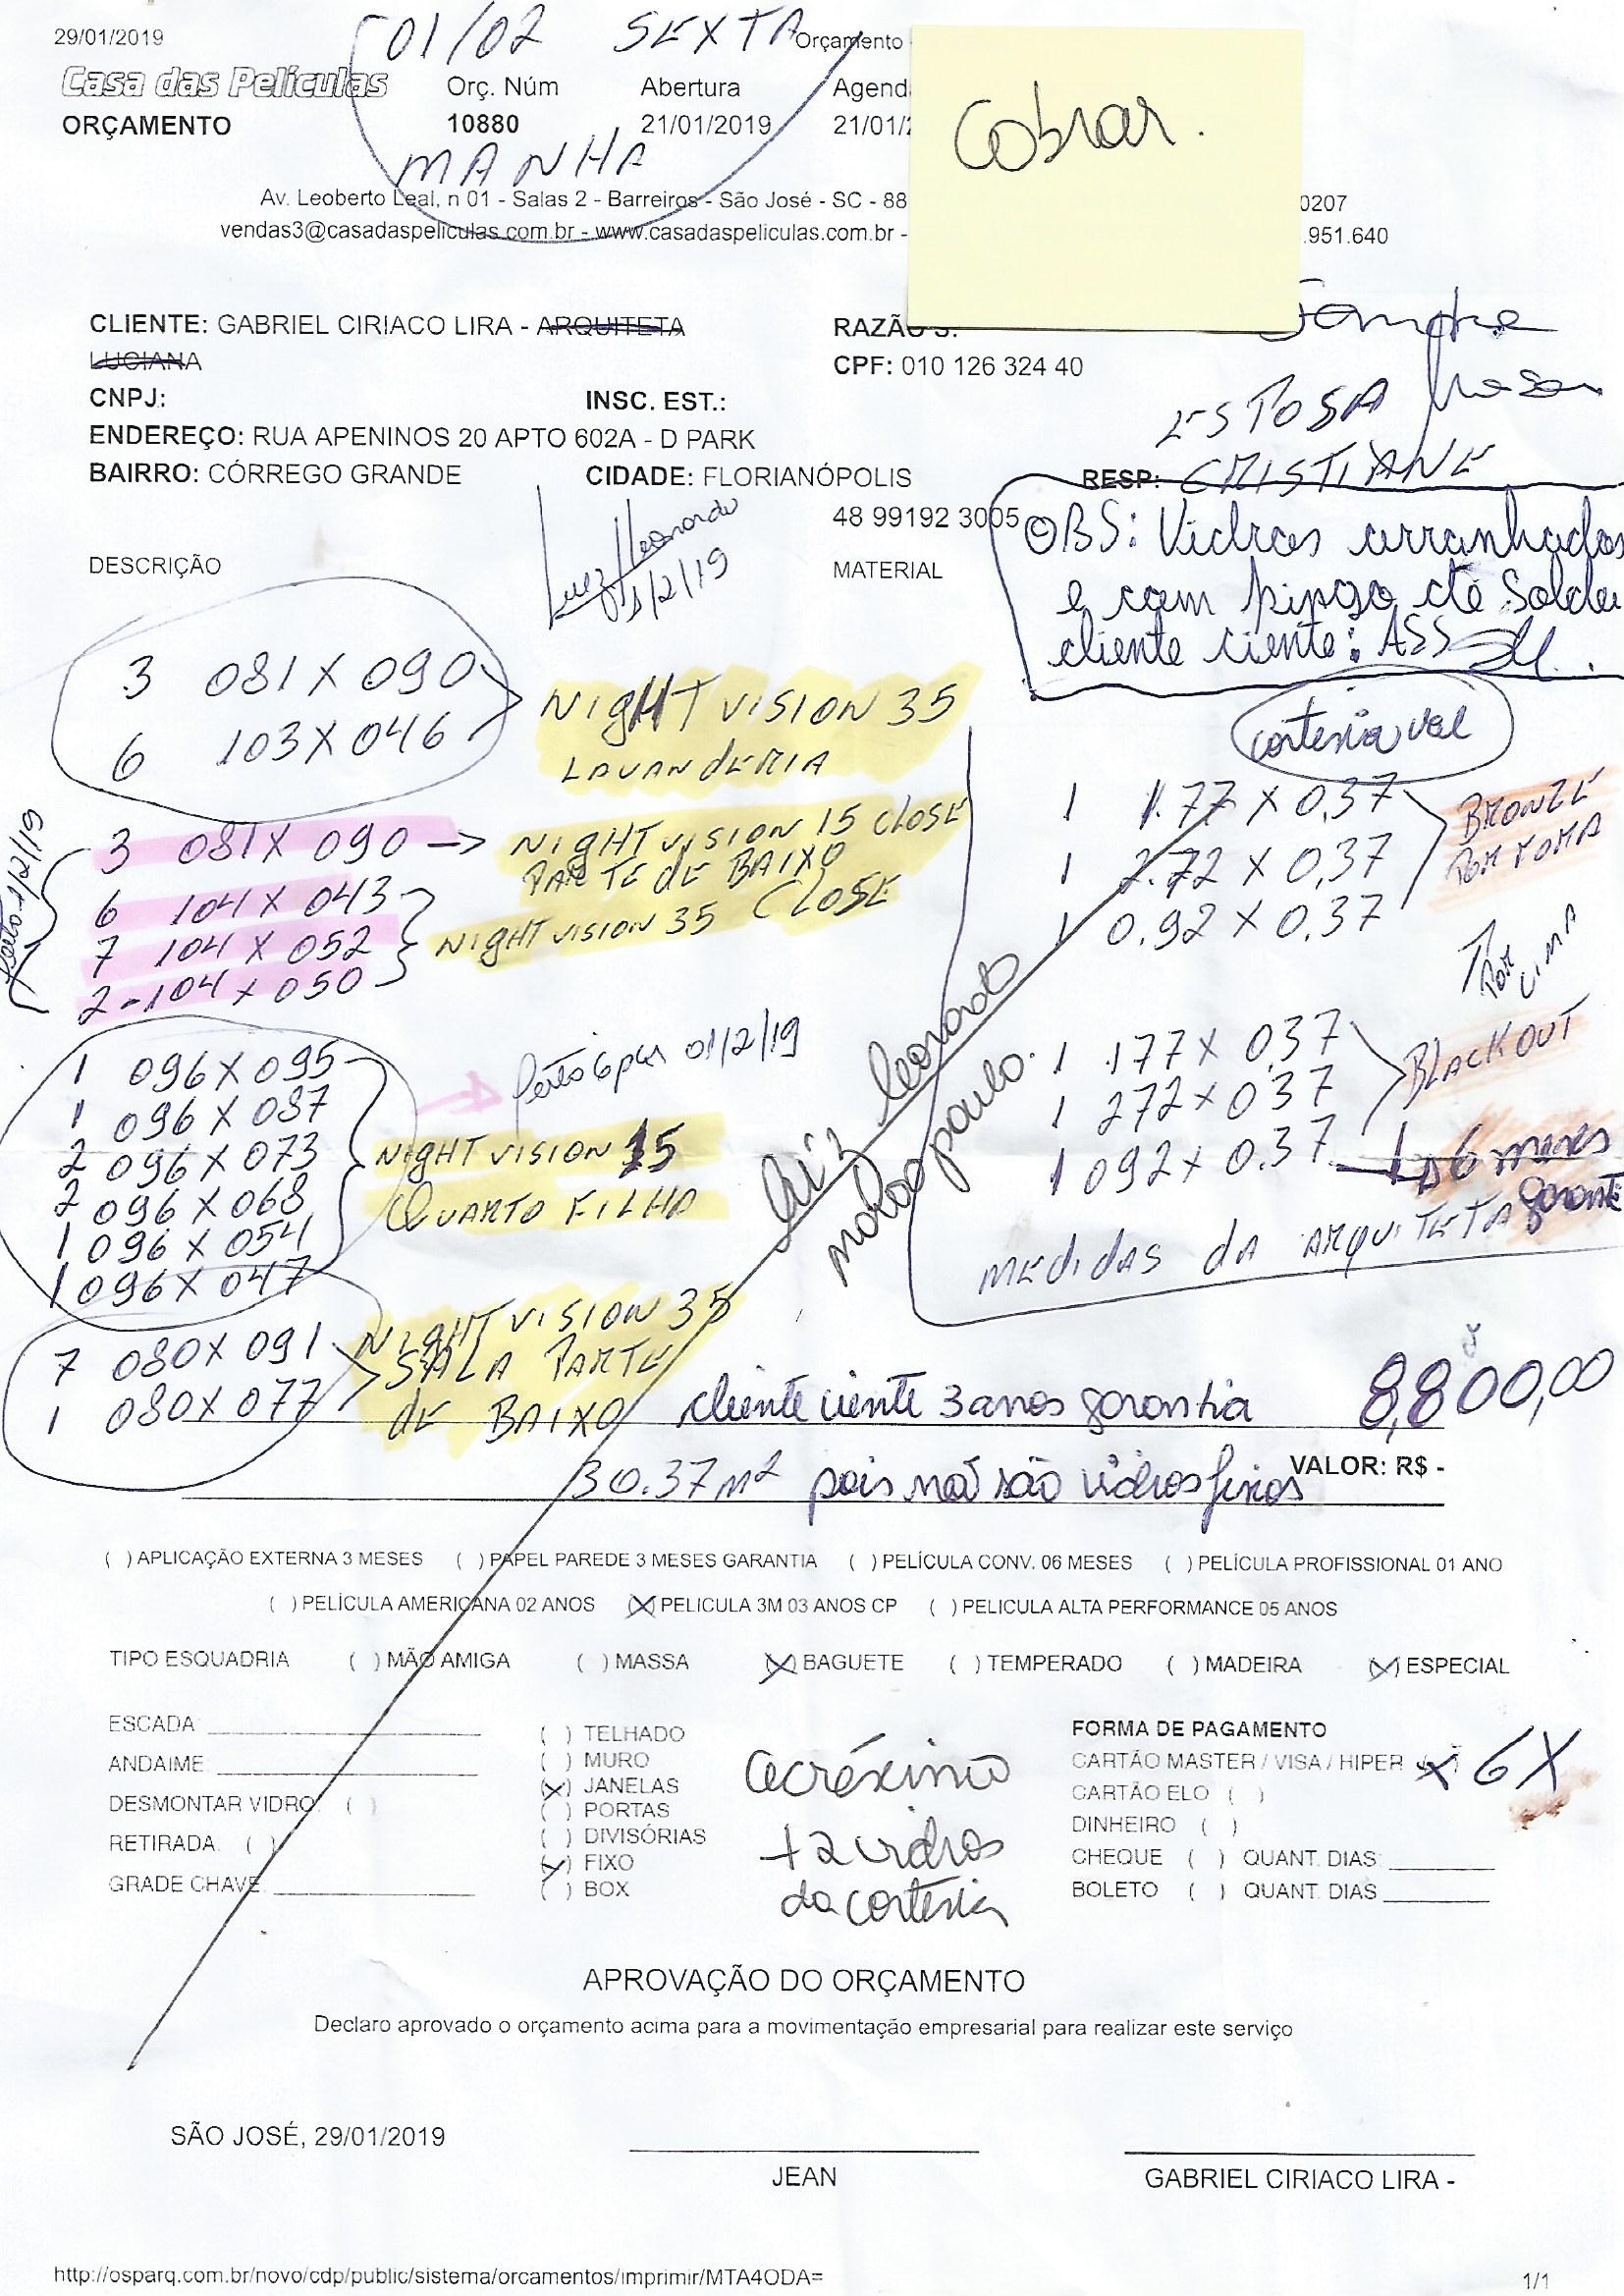 29/01/2019
01/02 SEXTA
Orçamento
Casa das Películas
Orç. Núm Abertura Agend
ORÇAMENTO
10880 21/01/2019 21/01/2
MANHA
Cobrar.
Av. Leoberto Leal, n 01 - Salas 2 - Barreiros - São José - SC - 88
0207
vendas3@casadaspeliculas.com.br - www.casadaspeliculas.com.br -
.951.640
CLIENTE: GABRIEL CIRIACO LIRA - ARQUITETA
LUCIANA
RAZÃO S.:
CPF: 010 126 324 40
CNPJ: INSC. EST.:
ENDEREÇO: RUA APENINOS 20 APTO 602A - D PARK
ESPOSA
BAIRRO: CÓRREGO GRANDE CIDADE: FLORIANÓPOLIS RESP: CRISTIANE
48 99192 3005
Luiz Leonardo
01/2/19
DESCRIÇÃO MATERIAL
OBS: Vidros arranhados
e com pingo de Solda
cliente ciente: ASS
3 081 X 090
6 103 X 046
NIGHT VISION 35
LAVANDERIA
3 081 X 090 -> NIGHT VISION 15 CLOSE
PARTE DE BAIXO
6 104 X 043
7 104 X 052
2 - 104 X 050
NIGHT VISION 35 CLOSE
feito 1/2/19
1 096 X 095
1 096 X 087
2 096 X 073
2 096 X 068
1 096 X 054
1 096 X 047
01/2/19
NIGHT VISION 15
QUARTO FILHA
7 080 X 091
1 080 X 077
NIGHT VISION 35
SALA PARTE
DE BAIXO
cortesia
1 1.77 X 0,37
1 2.72 X 0,37
1 0.92 X 0,37
BRONZE
POR FORA
POR CIMA
1 177 X 0,37
1 272 X 037
1 092 X 0.37
BLACKOUT
6 meses
garantia
MEDIDAS DA ARQUITETA
Luiz Leonardo
paulo.
cliente ciente 3 anos garantia
8,800,00
30.37 M² pois não são vidros fixos
VALOR: R$ -
( ) APLICAÇÃO EXTERNA 3 MESES ( ) PAPEL PAREDE 3 MESES GARANTIA ( ) PELÍCULA CONV. 06 MESES ( ) PELÍCULA PROFISSIONAL 01 ANO
( ) PELÍCULA AMERICANA 02 ANOS (X) PELICULA 3M 03 ANOS CP ( ) PELICULA ALTA PERFORMANCE 05 ANOS
TIPO ESQUADRIA ( ) MÃO AMIGA ( ) MASSA (X) BAGUETE ( ) TEMPERADO ( ) MADEIRA (X) ESPECIAL
ESCADA:
ANDAIME:
DESMONTAR VIDRO: ( )
RETIRADA: ( )
GRADE CHAVE:
( ) TELHADO
( ) MURO
(X) JANELAS
( ) PORTAS
( ) DIVISÓRIAS
(X) FIXO
( ) BOX
acréscimo
+2 vidros
da cortesia
FORMA DE PAGAMENTO
CARTÃO MASTER / VISA / HIPER (X) 6X
CARTÃO ELO ( )
DINHEIRO ( )
CHEQUE ( ) QUANT. DIAS:
BOLETO ( ) QUANT. DIAS
APROVAÇÃO DO ORÇAMENTO
Declaro aprovado o orçamento acima para a movimentação empresarial para realizar este serviço
SÃO JOSÉ, 29/01/2019
JEAN
GABRIEL CIRIACO LIRA -
http://osparq.com.br/novo/cdp/public/sistema/orcamentos/imprimir/MTA4ODA=
1/1